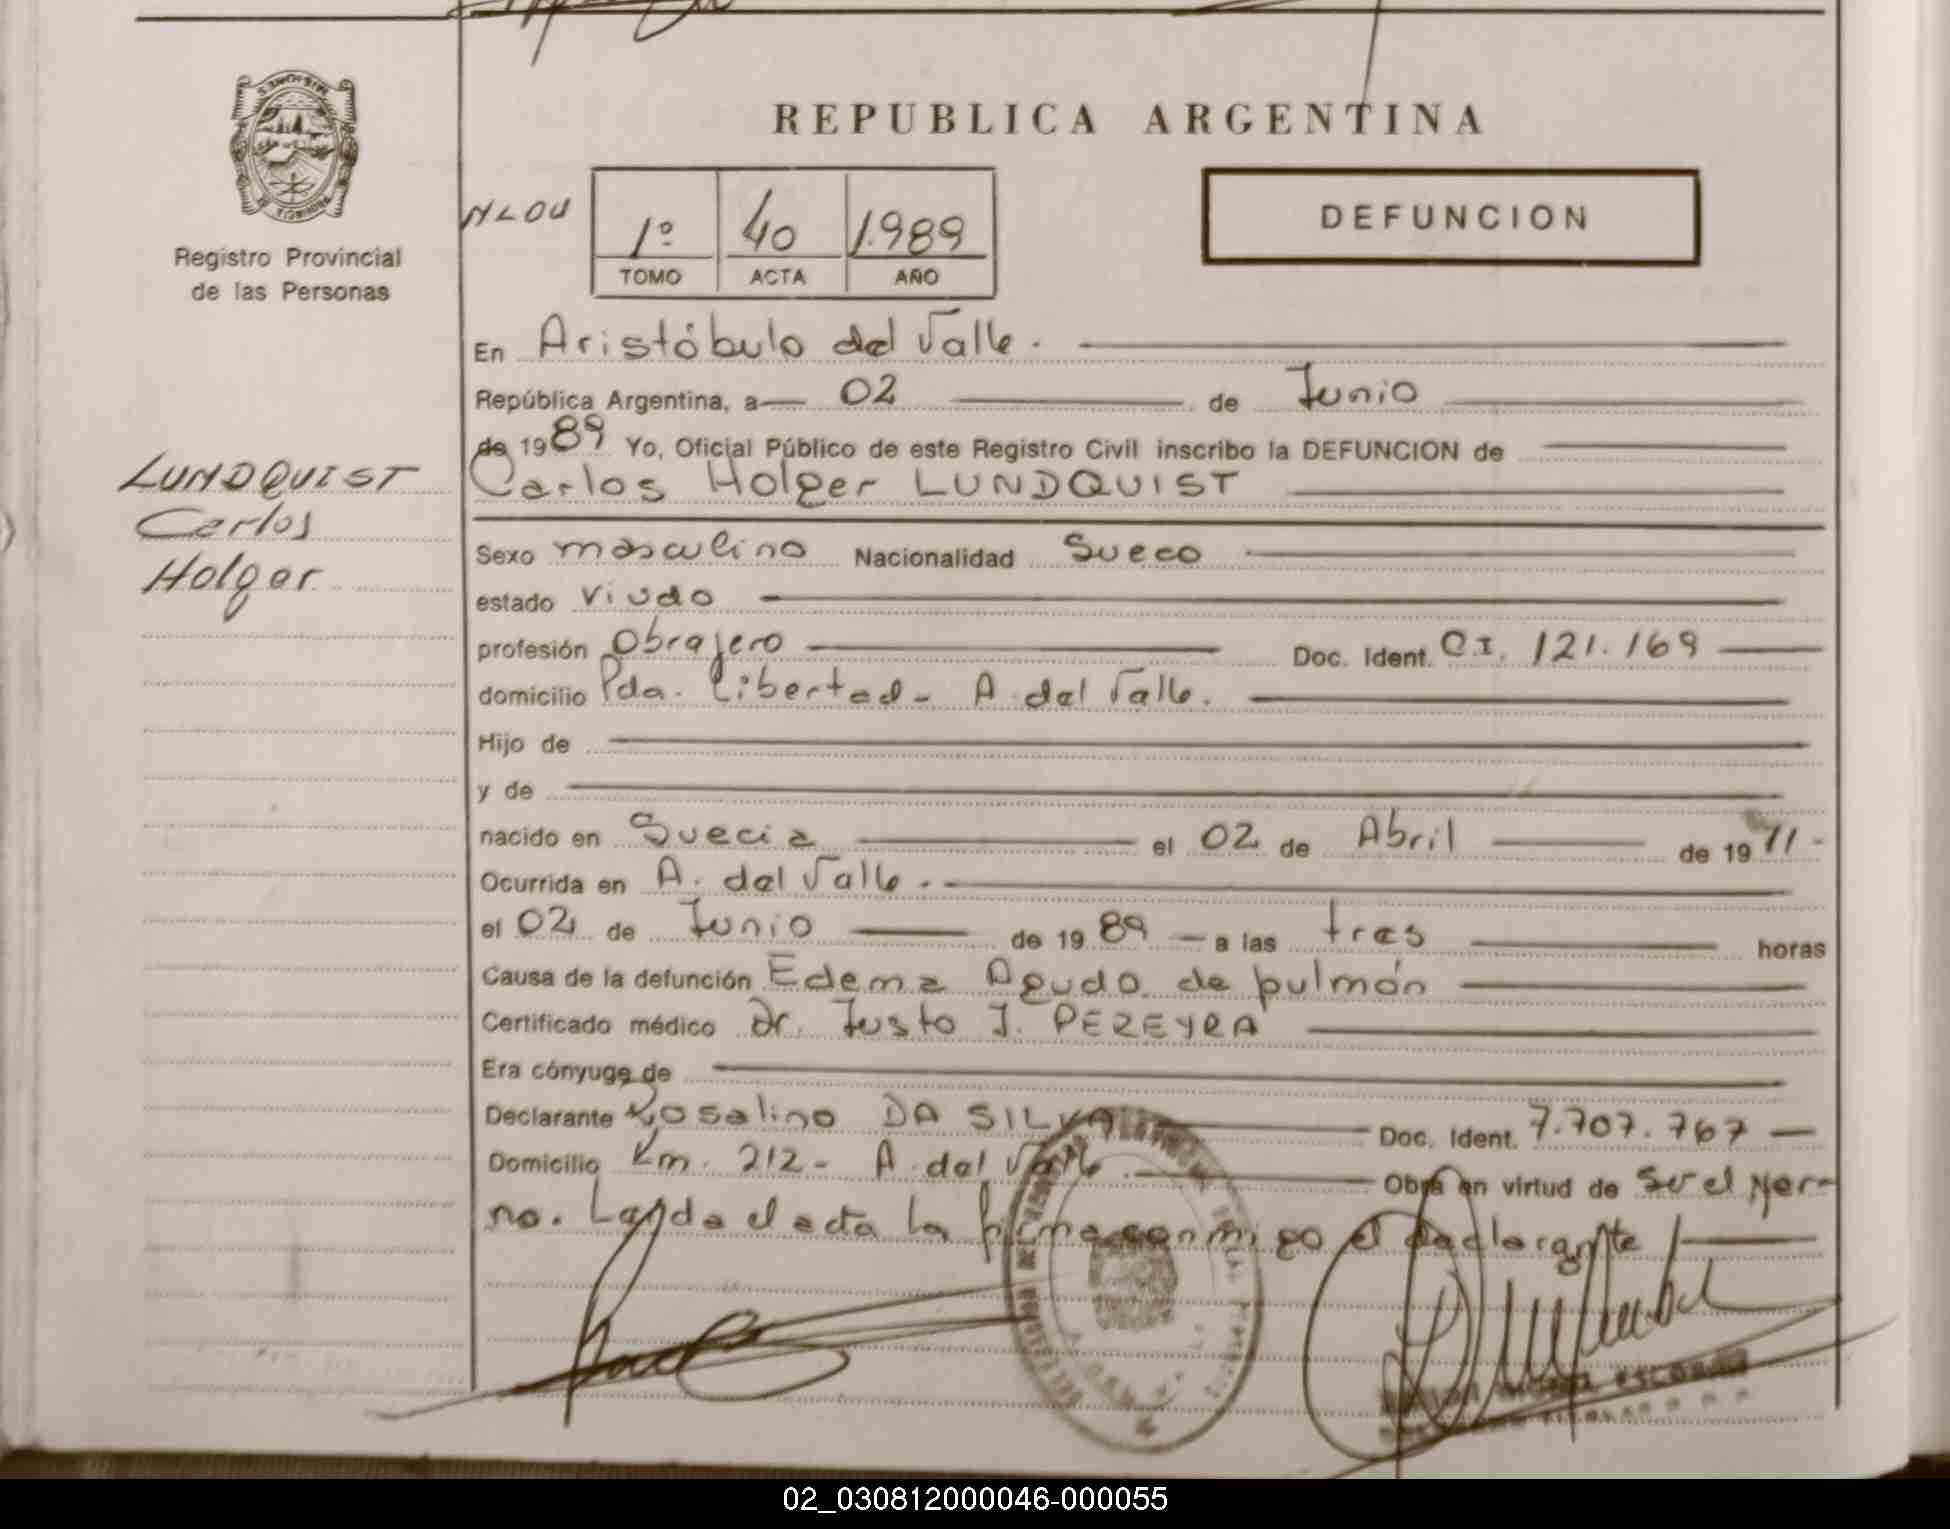 REPUBLICA ARGENTINA
Registro Provincial
de las Personas
1º 40 1.989
TOMO ACTA AÑO
DEFUNCION
LUNDQUIST
Carlos
Holger
En Aristóbulo del Valle.
República Argentina, a 02 de Junio
de 1989 Yo, Oficial Público de este Registro Civil inscribo la DEFUNCION de
Carlos Holger LUNDQUIST
Sexo masculino Nacionalidad Sueco
estado Viudo
profesión Obrajero Doc. Ident. C.I. 121.169
domicilio Pda. Libertad - A. del Valle.
Hijo de
y de
nacido en Suecia el 02 de Abril de 1911 -
Ocurrida en A. del Valle.
el 02 de Junio de 1989 a las tres horas
Causa de la defunción Edema Agudo de pulmón
Certificado médico Dr. Justo J. PEREYRA
Era cónyuge de
Declarante Rosalino DA SILVA Doc. Ident. 7.707.767
Domicilio Km. 212 - A. del Valle. Obra en virtud de Ser el yer-
no. Leyda el acta la firma conmigo el declarante
02_030812000046-000055